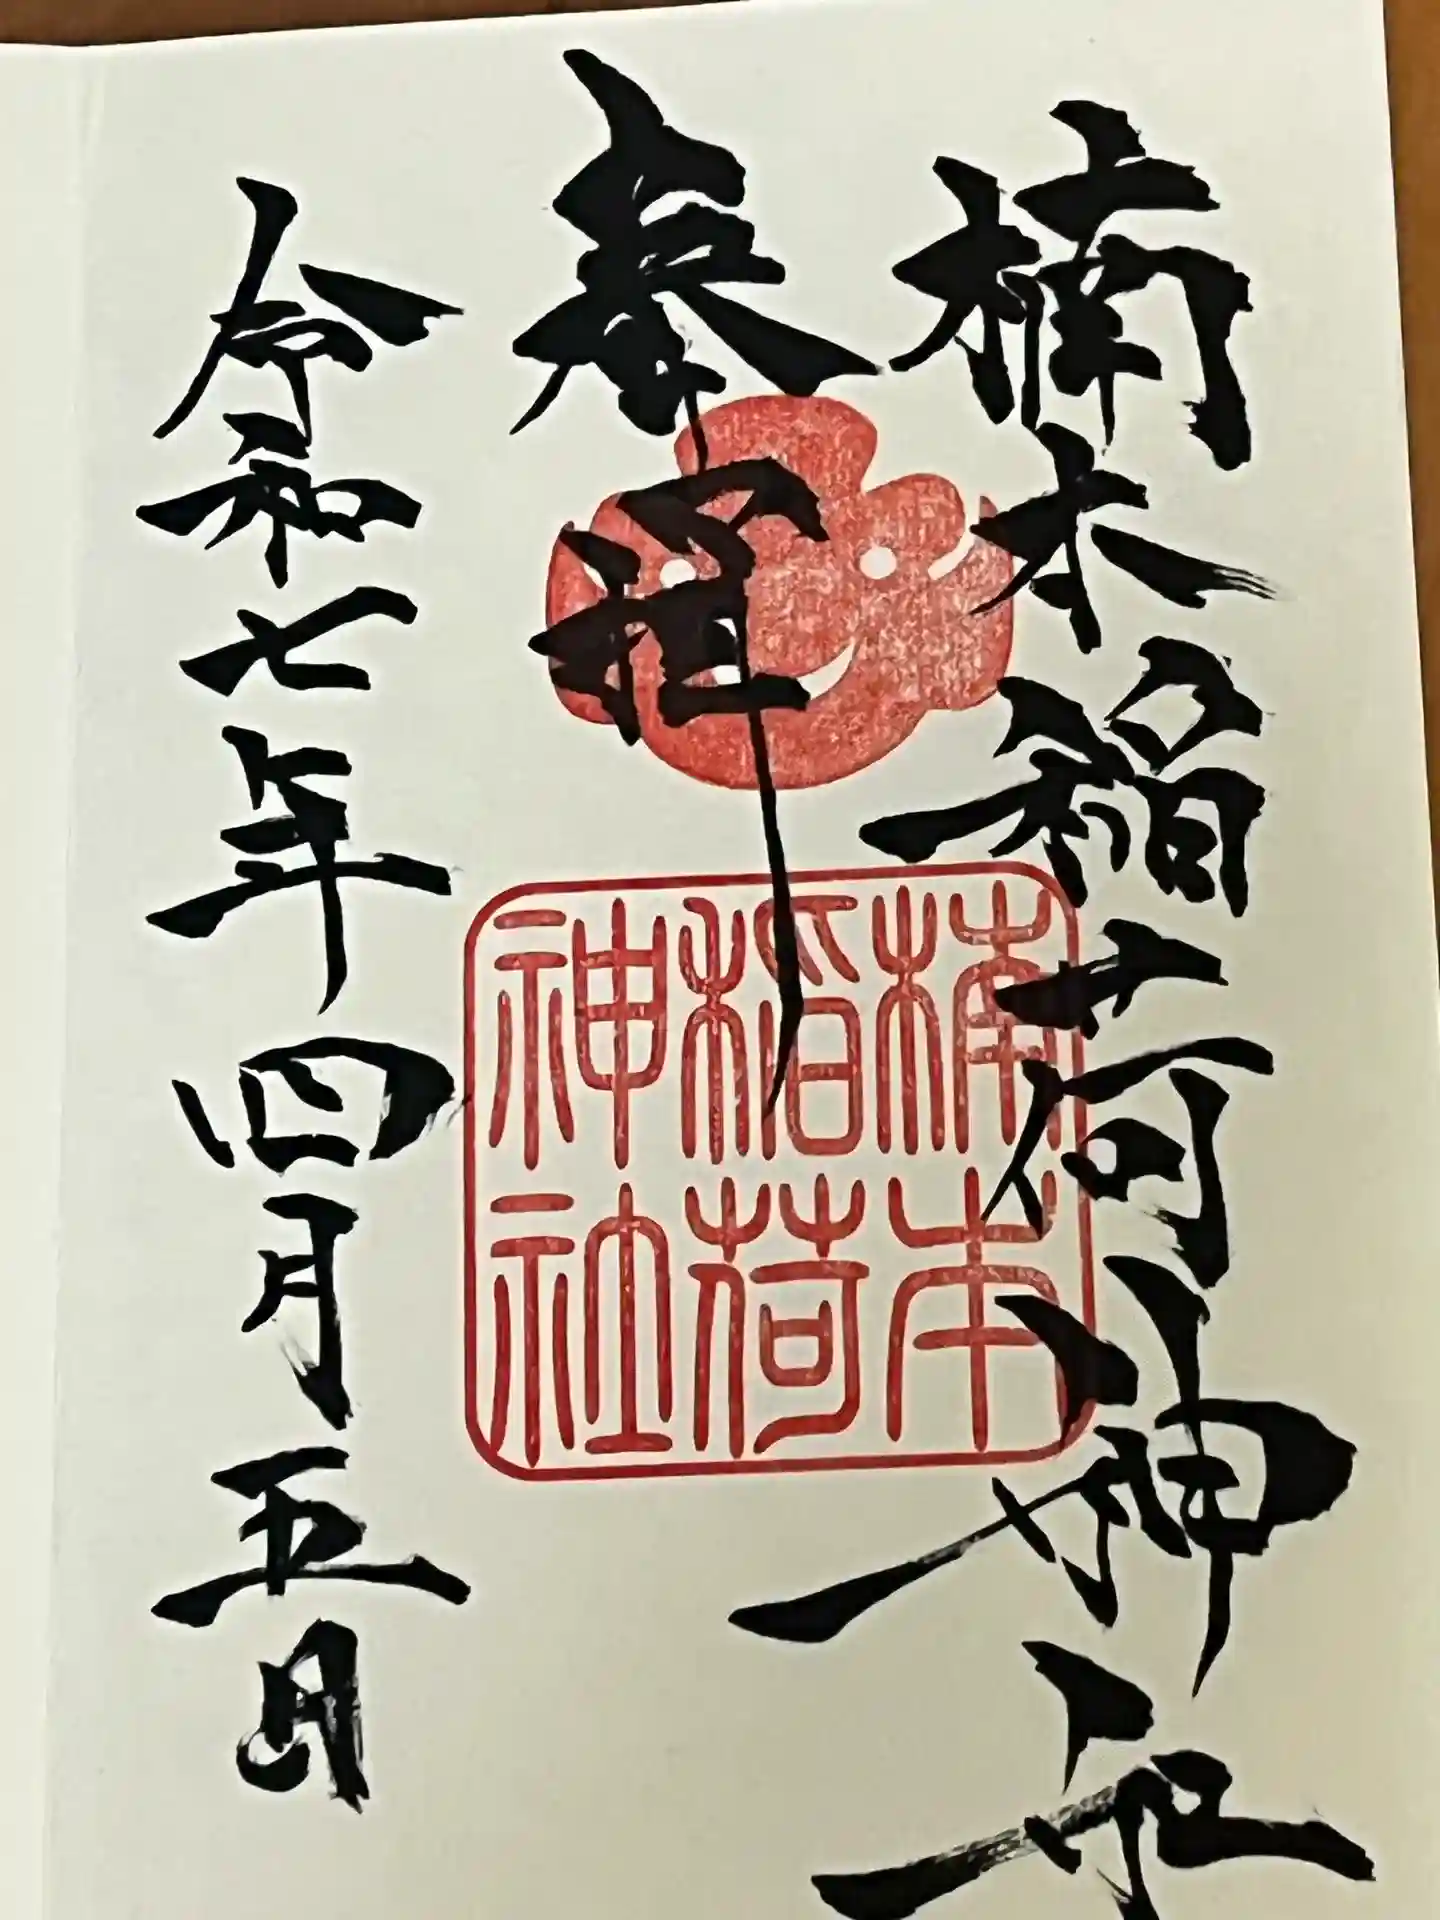 楠木稲荷神社
奉拝
令和七年四月五日
楠本
稲荷
神社